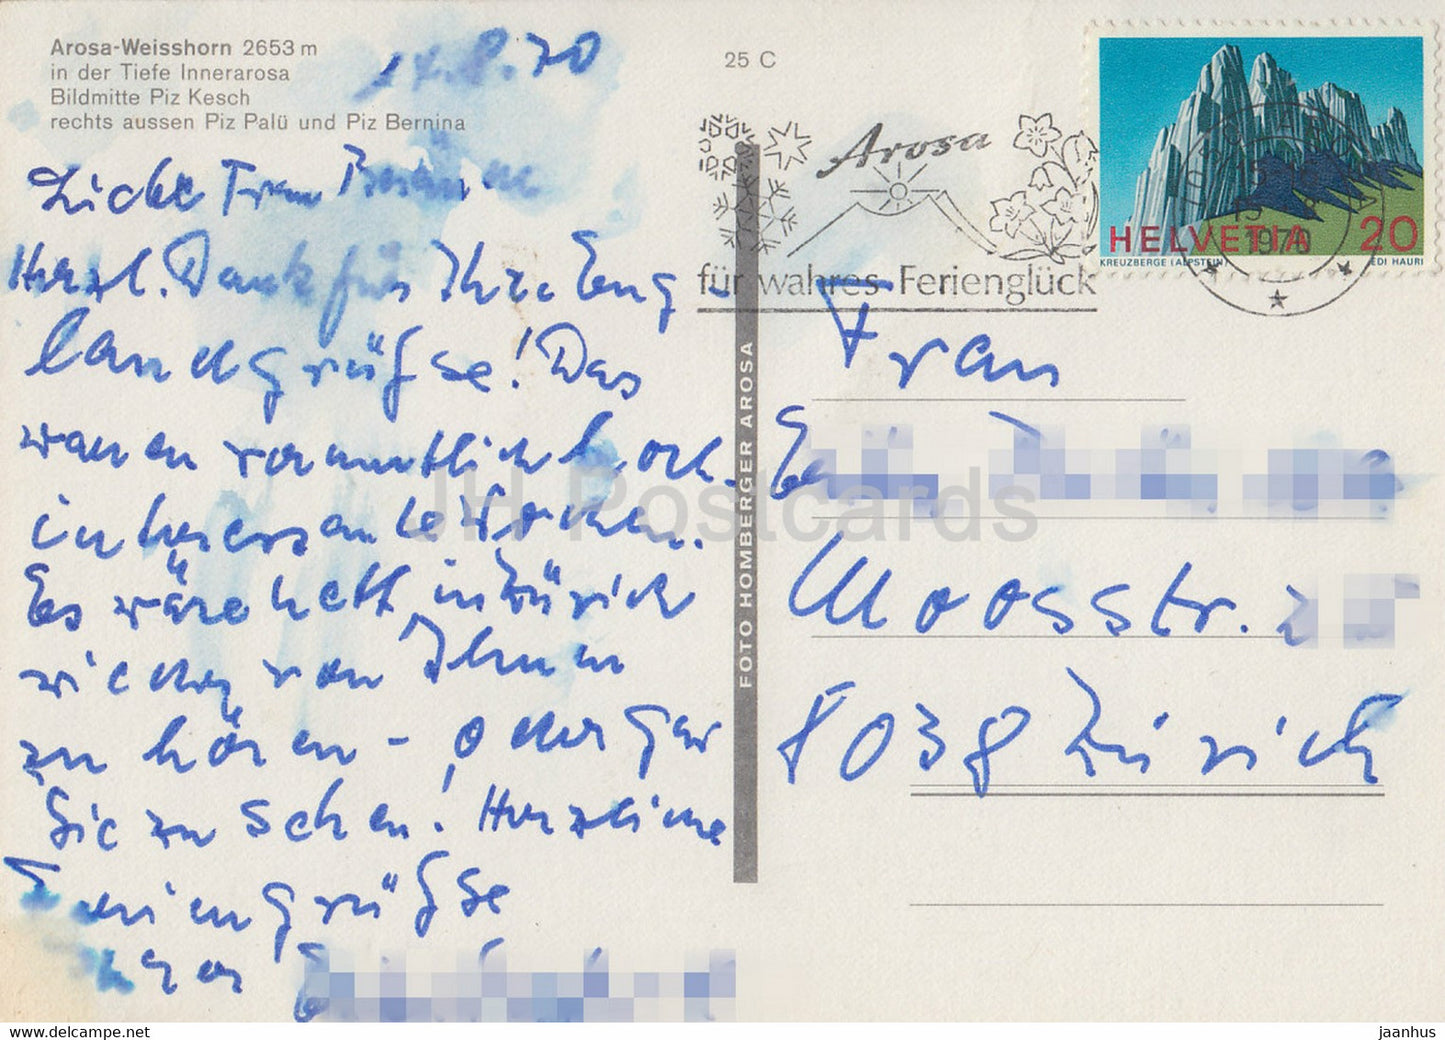 Arosa-Weisshorn 2653 m
in der Tiefe Innerarosa
Bildmitte Piz Kesch
rechts aussen Piz Palü und Piz Bernina
25 C
Arosa
für wahres Ferienglück
HELVETIA 20
KREUZBERGE (ALPSTEIN) EDI HAURI
1970
FOTO HOMBERGER AROSA
JH Postcards
.8.70
Liebe Frau
Herzl. Dank für Ihre Eng-
landgrüsse! Das
waren vermutlich hoch-
interessante Wochen.
Es wäre nett, in Zürich
wieder von Ihnen
zu hören - oder gar
Sie zu sehen! Herzliche
Feriengrüsse
Ihrer
Frau
Moosstr. 2
8038 Zürich
jh-postcard.myshopify.com
jaanhus